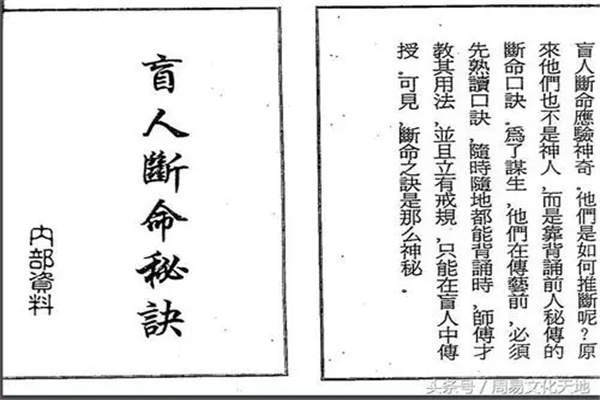 盲人斷命秘訣
內部資料
盲人斷命應驗神奇．他們是如何推斷呢？原
來他們也不是神人，而是靠背誦前人秘傳的
斷命口訣．為了謀生，他們在傳藝前，必須
先熟讀口訣，隨時隨地都能背誦時，師傅才
教其用法，並且立有戒規，只能在盲人中傳
授．可見，斷命之訣是那么神秘．
头条号／周易文化天地